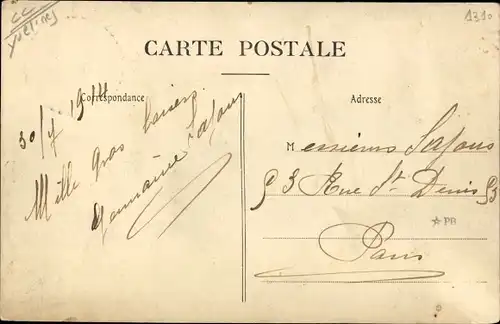 CC
Yvelines
1310
CARTE POSTALE
Correspondance
Adresse
30/7 1914
Mille Gros baisers
Germaine Lafous
Messieurs Lafous
93 Rue St Denis 93
Paris
☆ PB